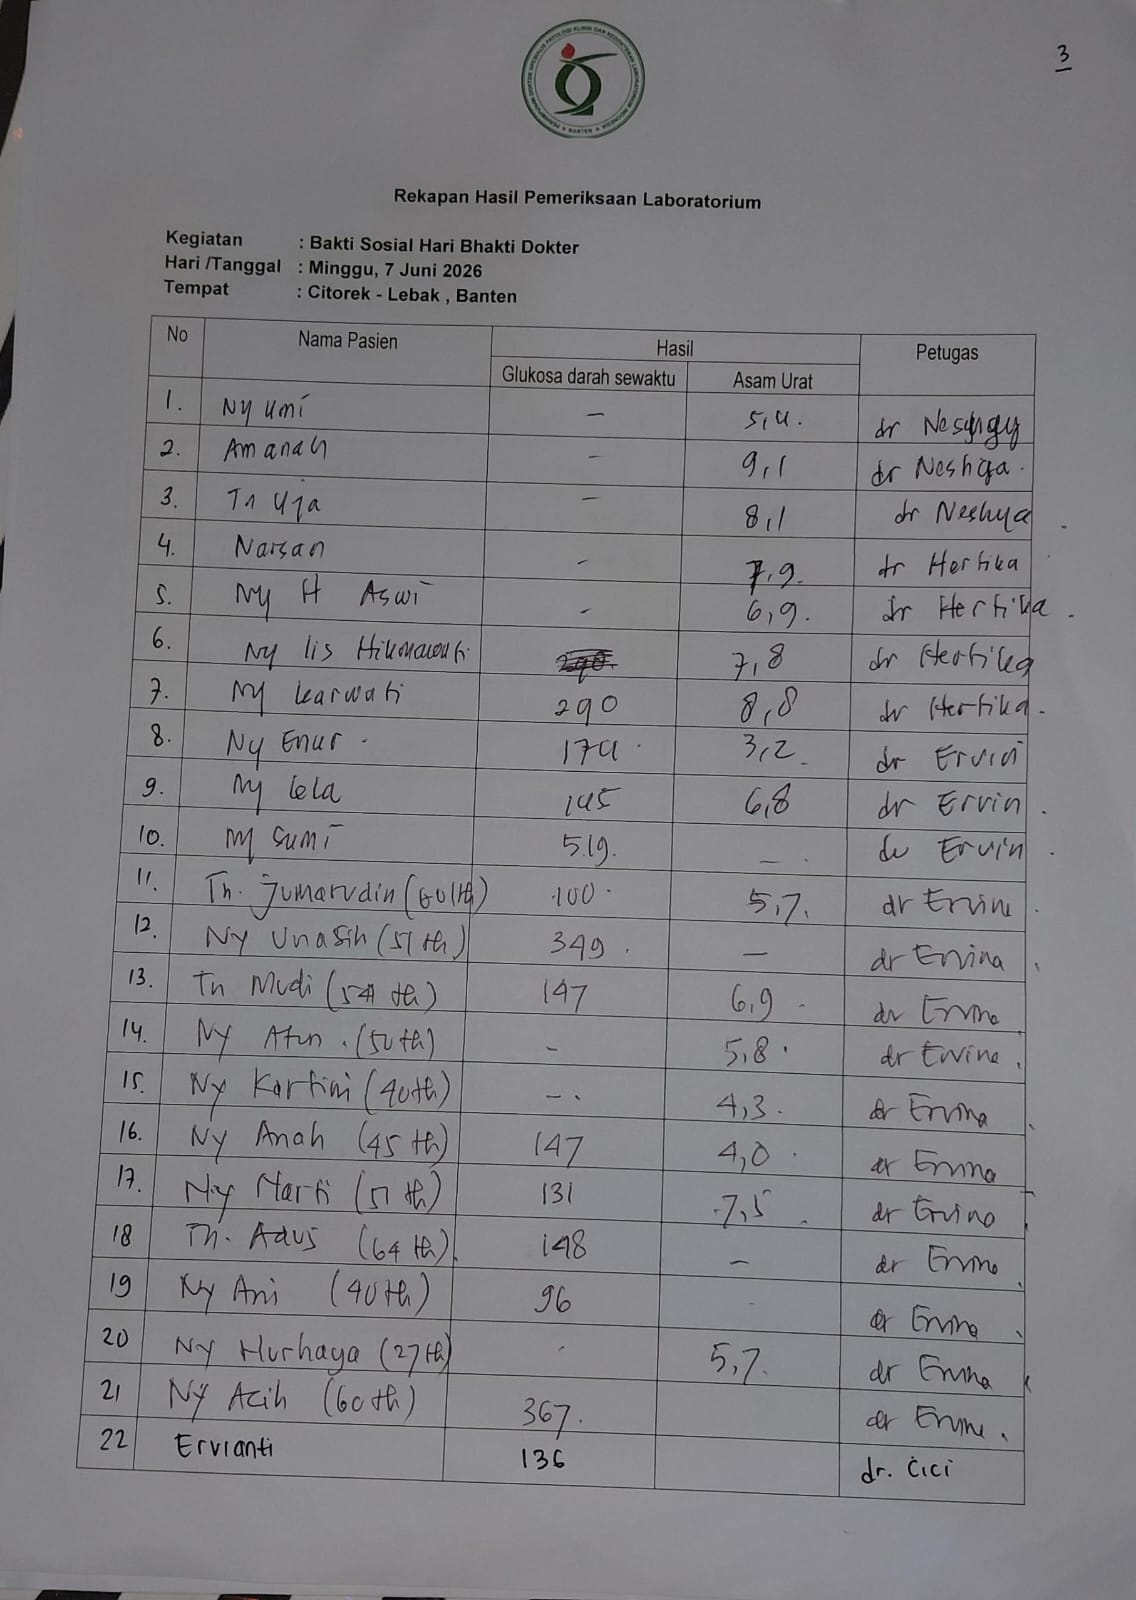 3
PERHIMPUNAN DOKTER SPESIALIS PATOLOGI KLINIK DAN KEDOKTERAN LABORATORIUM INDONESIA
BANTEN
Rekapan Hasil Pemeriksaan Laboratorium
Kegiatan : Bakti Sosial Hari Bhakti Dokter
Hari /Tanggal : Minggu, 7 Juni 2026
Tempat : Citorek - Lebak , Banten
No Nama Pasien Hasil Petugas
Glukosa darah sewaktu Asam Urat
1. Ny Umi – 5,4. dr
2. Amanah – 9,1 dr Neshya.
3. Tn Uja – 8,1 dr Neshya
4. Narsan - 7,9. dr Hertika
5. Ny H Aswi - 6,9. dr Hertika.
6. Ny Iis Hikmawati. 7,8 dr Hertika
7. Ny Karwati 290 8,8 dr Hertika.
8. Ny Enur. 174. 3,2. dr Ervin
9. Ny Lela 145 6,8 dr Ervin.
10. Ny Sumi 519. –. dr Ervin.
11. Tn. Jumarudin 100. 5,7. dr Ervina.
12. Ny Unasih (51 th) 349. – dr Ervina
13. Tn Mudi (54 th) 147 6,9. dr Ervina
14. Ny Atun. (50 th) - 5,8. dr Ervina.
15. Ny Kartini (40th) -. 4,3. dr Ervina
16. Ny Anah (45 th) 147 4,0. dr Ervina
17. Ny Marti (51 th) 131 7,5. dr Ervina
18 Tn. Adus (64 th). 148 – dr Ervina
19 Ny Ani (40th) 96 dr Ervina
20 Ny Nurhaya (27th) 5,7. dr Ervina
21 Ny Acih (60th) 367. dr Ervina.
22 Ervianti 136 dr. Cici